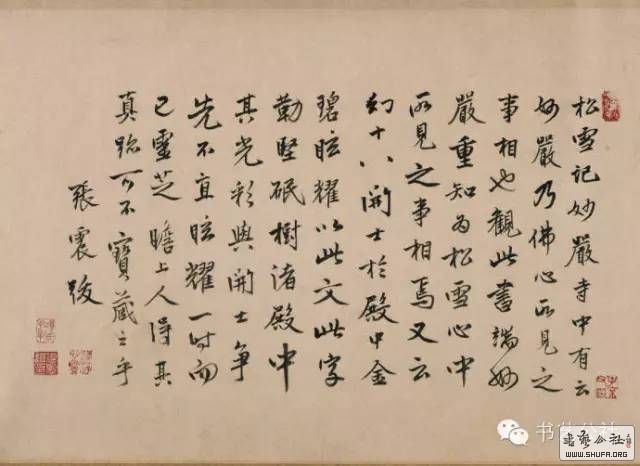 松雪记妙嚴寺中有云
妙嚴乃佛心所見之
事相也觀此書端妙
嚴重知为松雪心中
所見之事相焉又云
幻十八開士於殿中金
碧眩耀以此文此字
勒堅珉樹諸殿中
其光彩與開士争
先不宜眩耀一时而
已靈芝瞻上人得其
真跡可不寶藏之乎
張雯跋
书艺公社
書藝公社
WWW.SHUFA.ORG